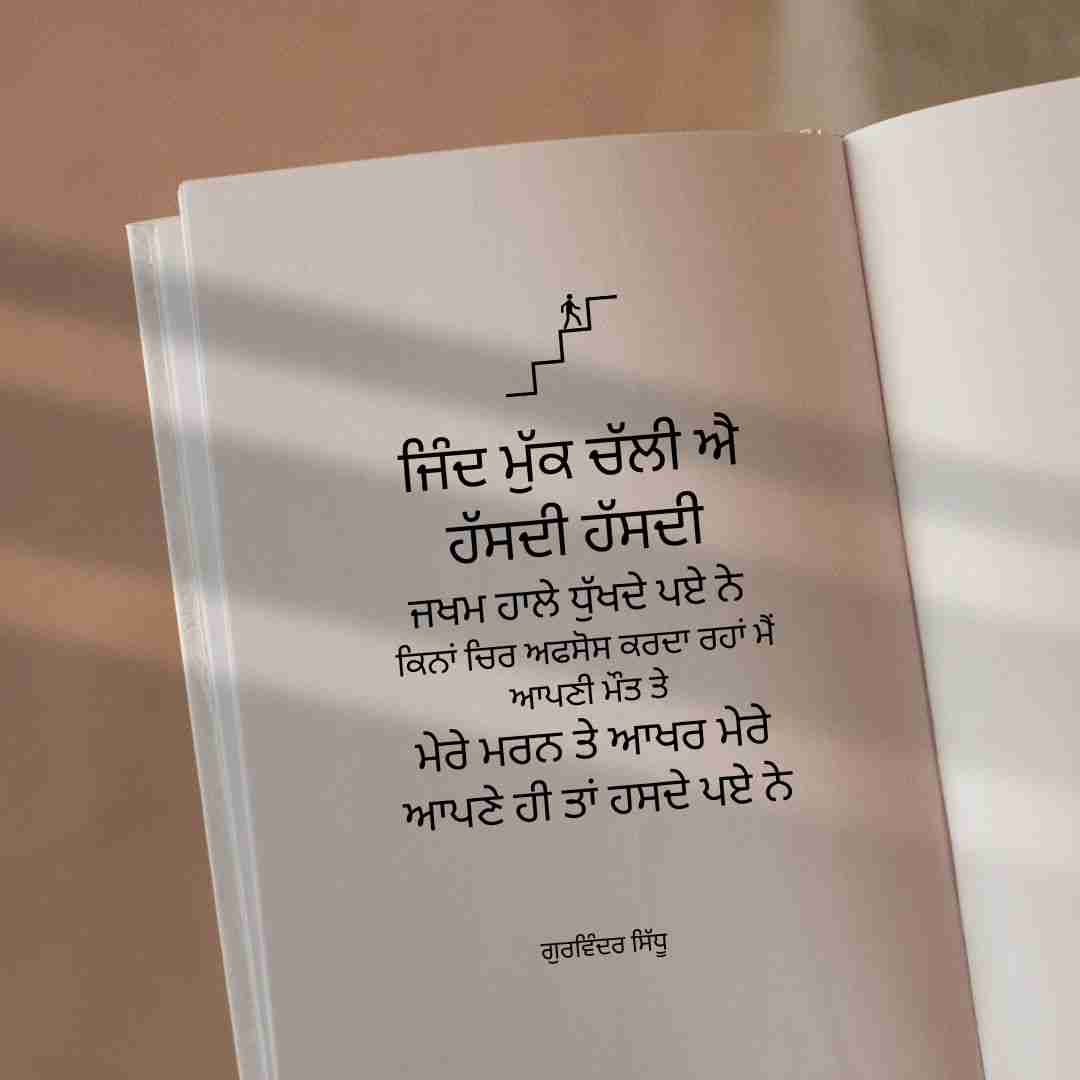 ਜਿੰਦ ਮੁੱਕ ਚੱਲੀ ਐ
ਹੱਸਦੀ ਹੱਸਦੀ
ਜਖਮ ਹਾਲੇ ਧੁੱਖਦੇ ਪਏ ਨੇ
ਕਿਨਾਂ ਚਿਰ ਅਫਸੋਸ ਕਰਦਾ ਰਹਾਂ ਮੈਂ
ਆਪਣੀ ਮੌਤ ਤੇ
ਮੇਰੇ ਮਰਨ ਤੇ ਆਖਰ ਮੇਰੇ
ਆਪਣੇ ਹੀ ਤਾਂ ਹਸਦੇ ਪਏ ਨੇ
ਗੁਰਵਿੰਦਰ ਸਿੱਧੂ